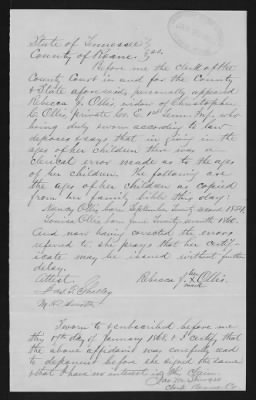 State of Tennessee
County of Roane
Before me the clerk of the
County Court in and for the County
& State aforesaid, personally appeared
Rebecca J. Ollis widow of Christopher
C. Ollis, private Co. E. 1st Tenn. Inf., who
being duly sworn according to law
deposes & says that in giving in the
ages of her children there was a
clerical error made as to the ages
of her children. The following are
the ages of her children as copied
from her family bible this day.
Nancy Ollis born September
Louisa Ollis born June
And now having corrected the errors
referred to she prays that her certif-
icate may be issued without further
delay.
Attest.
Rebecca J. X Ollis
her
mark
Sworn to & subscribed before me
this 17th day of January 1868, & I certify that
the above affidavit was carefully read
to deponent before she signed the same
& that I have no interest in the claim.
Clerk Roane Co